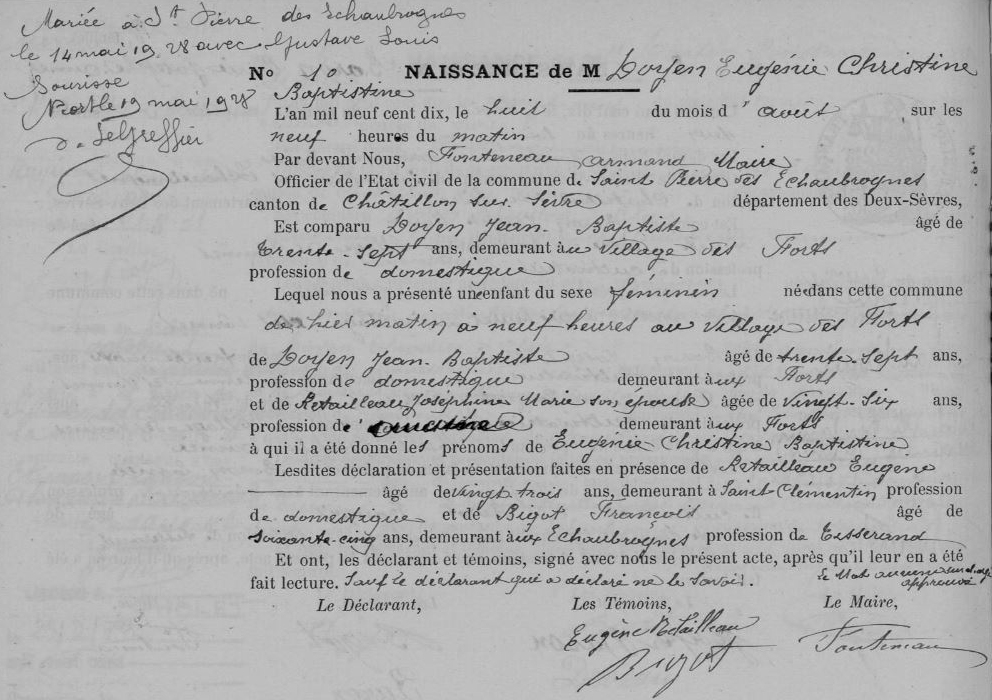 Mariée à St Pierre des Echaubrognes
le 14 mai 1928 avec Gustave Louis
Sourisse
Niort le 19 mai 1928
Le Greffier
No 10 NAISSANCE de M Doyen Eugénie Christine
Baptistine
L'an mil neuf cent dix, le huit du mois d' août, sur les
neuf heures du matin
Par devant Nous, Fonteneau Armand Maire
Officier de l'Etat civil de la commune de Saint Pierre des Echaubrognes
canton de Châtillon sur Sèvre département des Deux-Sèvres,
Est comparu Doyen Jean-Baptiste âgé de
trente-sept ans, demeurant au village des Forts
profession de domestique
Lequel nous a présenté un enfant du sexe féminin né dans cette commune
de hier matin à neuf heures au village des Forts
de Doyen Jean-Baptiste âgé de trente-sept ans,
profession de domestique demeurant aux Forts
et de Retailleau Joséphine Marie son épouse âgée de vingt-six ans,
profession de demeurant aux Forts
à qui il a été donné les prénoms de Eugénie Christine Baptistine
Lesdites déclaration et présentation faites en présence de Retailleau Eugène
âgé de vingt trois ans, demeurant à Saint Clémentin profession
de domestique et de Bigot François âgé de
soixante-cinq ans, demeurant aux Echaubrognes profession de tisserand
Et ont, les déclarant et témoins, signé avec nous le présent acte, après qu'il leur en a été
fait lecture. Sauf le déclarant qui a déclaré ne le savoir. le mot approuvé
Le Déclarant, Les Témoins, Le Maire,
Eugène Retailleau
Bigot Fonteneau